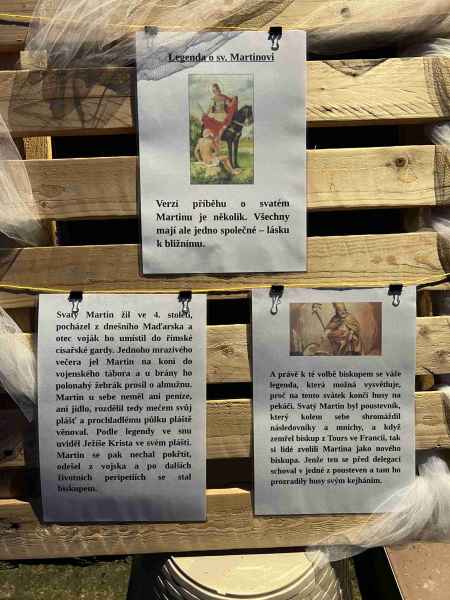 Legenda o sv. Martinovi
Verzí příběhu o svatém
Martinu je několik. Všechny
mají ale jedno společné – lásku
k bližnímu.
Svatý Martin žil ve 4. století,
pocházel z dnešního Maďarska a
otec voják ho umístil do římské
císařské gardy. Jednoho mrazivého
večera jel Martin na koni do
vojenského tábora a u brány ho
polonahý žebrák prosil o almužnu.
Martin u sebe neměl ani peníze,
ani jídlo, rozdělil tedy mečem svůj
plášť a prochladlému půlku pláště
věnoval. Podle legendy ve snu
uviděl Ježíše Krista ve svém plášti.
Martin se pak nechal pokřtít,
odešel z vojska a po dalších
životních peripetiích se stal
biskupem.
A právě k té volbě biskupem se váže
legenda, která možná vysvětluje,
proč na tento svátek končí husy na
pekáči. Svatý Martin byl poustevník,
který kolem sebe shromáždil
následovníky a mnichy, a když
zemřel biskup z Tours ve Francii, tak
si lidé zvolili Martina jako nového
biskupa. Jenže ten se před delegací
schoval v jedné z pousteven a tam ho
prozradily husy svým kejháním.